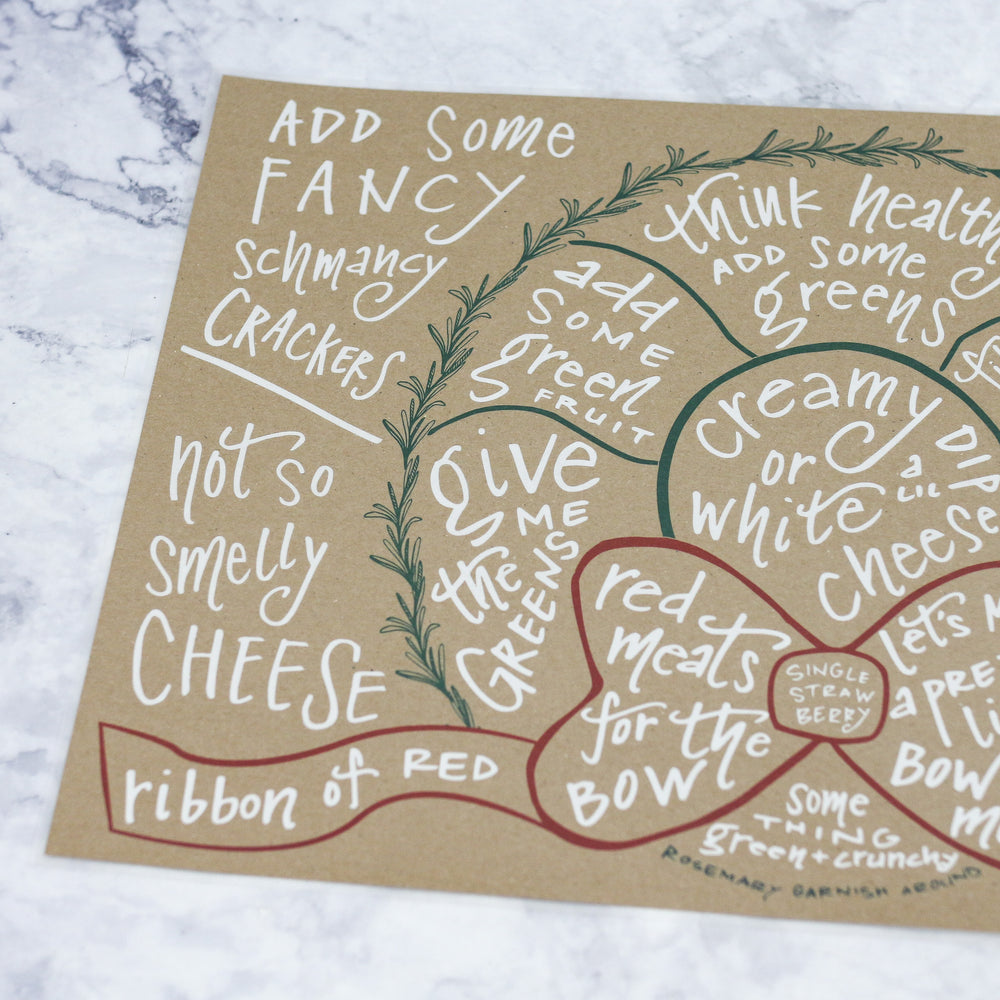 ADD Some
FANCY
schmancy
CRACKERS
not so
smelly
CHEESE
think healthy
ADD some
greens
add
SOME
green
FRUIT
give
ME
the
GREENS
creamy
or
white
a
LIL
DIP
cheese
red
meats
for the
BOW
SINGLE
STRAW
BERRY
let's
a
BOW
ribbon of RED
some
THING
green + crunchy
ROSEMARY GARNISH AROUND